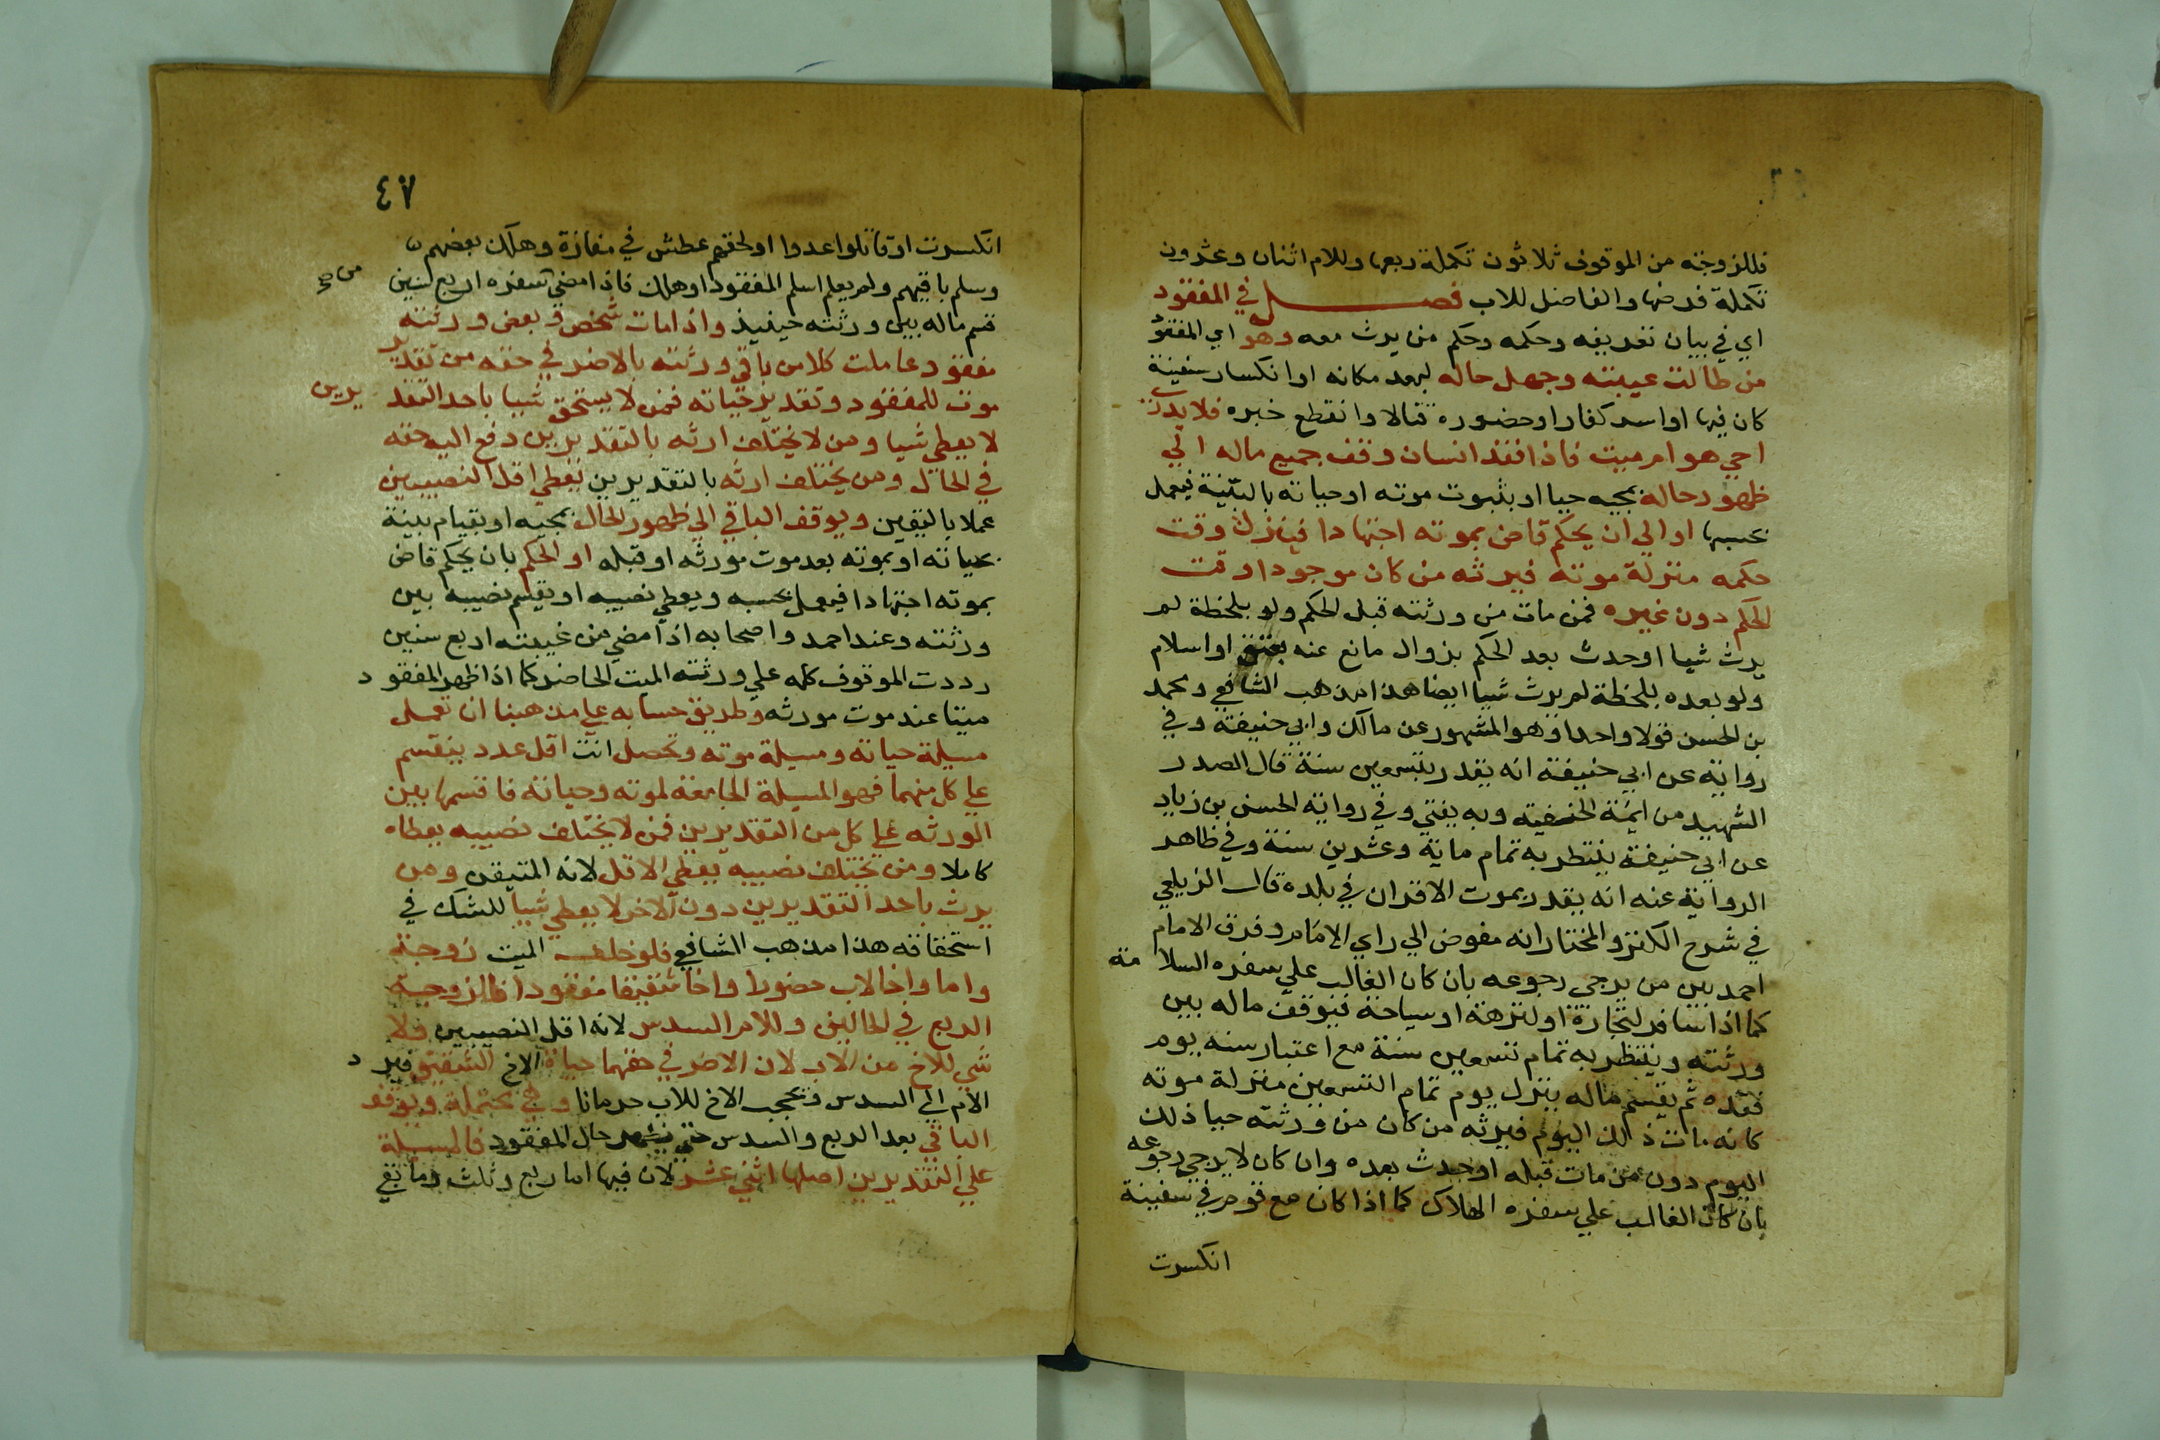 فللزوجة من الموقوف ثلاثون تكملة ربعها وللام اثنان وعشرون
تكملة فرضها والفاضل للاب فصل في المفقود
اي في بيان تعريفه وحكمه وحكم من يرث معه وهو اي المفقود
من طالت غيبته وجهل حاله لبعد مكانه او انكسار سفينة
كان فيها او اسر كفار او حضوره قتالا وانقطع خبره فلا يدرى
احي هو ام ميت فاذا فقد انسان وقف جميع ماله الي
ظهور حاله بمجيه حيا او بثبوت موته او حياته بالبينة فيعمل
بحسبها او الي ان يحكم قاض بموته اجتهادا فينزل وقت
حكمه منزلة موته فيرثه من كان موجودا وقت
الحكم دون غيره فمن مات من ورثته قبل الحكم ولو بلحظة لم
يرث شيا او حدث بعد الحكم بزوال مانع عنه بعتق او اسلام
ولو بعده بلحظة لم يرث شيا ايضا هذا مذهب الشافعي ومحمد
بن الحسن قولا واحدا وهو المشهور عن مالك وابي حنيفة وفي
رواية عن ابي حنيفة انه يقدر بتسعين سنة قال الصدر
الشهيد من ايمة الحنفية وبه يفتي وفي رواية الحسن بن زياد
عن ابي حنيفة ينتظر به تمام ماية وعشرين سنة وفي ظاهر
الرواية عنه انه يقدر بموت الاقران في بلده قال الزيلعي
في شرح الكنز والمختار انه مفوض الي راي الامام وفرق الامام
احمد بين من يرجى رجوعه بان كان الغالب علي سفره السلامة
كما اذا سافر لتجارة او لنزهة او سياحة فيوقف ماله بين
ورثته وينتظر به تمام تسعين سنة مع اعتبار سنه يوم
فقده ثم يقسم ماله بنزل يوم تمام التسعين منزلة موته
كانه مات ذلك اليوم فيرثه من كان من ورثته حيا ذلك
اليوم دون من مات قبله او حدث بعده وان كان لا يرجى رجوعه
بان كان الغالب علي سفره الهلاك كما اذا كان مع قوم في سفينة
انكسرت
٤٧
انكسرت او قاتلوا عدوا او لحقهم عطش في مفازة وهلك بعضهم
وسلم باقيهم ولم يعلم اسلم المفقود او هلك فاذا مضى سفره اربع سنين
قسم ماله بين ورثته حينيذ واذا مات شخص وبعض ورثته
مفقود عاملت كلا من باقي ورثته بالاضر في حقه من تقدير
موت للمفقود وتقدير حياته فمن لا يستحق شيا باحد التقديرين
لا يعطى شيا ومن لا يختلف ارثه بالتقديرين دفع اليه حقه
في الحال ومن يختلف ارثه بالتقديرين تعطي اقل النصيبين
عملا باليقين ويوقف الباقي الي ظهور الحال بمجيه او بقيام بينة
بحياته او بموته بعد موت مورثه او قبله او الحكم بان يحكم قاض
بموته اجتهادا فيعمل بحسبه ويعطي نصيبه او يقسم نصيبه بين
ورثته وعند احمد واصحابه اذا مضى من غيبته اربع سنين
رددت الموقوف كله علي ورثته الميت الحاضر كما اذا ظهر المفقود
ميتا عند موت مورثه وطريق حسابه علي مذهبنا ان تعمل
مسيلة حياته ومسيلة موته وتحصل انت اقل عدد ينقسم
علي كل منهما فهو المسيلة الجامعة لموته وحياته فاقسمها بين
الورثه علي كل من التقديرين فمن لا يختلف نصيبه يعطاه
كاملا ومن يختلف نصيبه يعطي الاقل لانه المتيقن ومن
يرث باحد التقديرين دون الاخر لا يعطي شيا للشك في
استحقاقه هذا مذهب الشافعي فلو خلف الميت زوجة
واما واخا لاب حضورا واخا شقيقا مفقودا فللزوجة
الربع في الحالين وللام السدس لانه اقل النصيبين فلا
شي للاخ من الاب لان الاضر في حقهما حياة الاخ الشقيق فيرد
الام الي السدس ويحجب الاخ للاب حرمانا وهي محتملة ويوقف
الباقي بعد الربع والسدس حتي يظهر حال المفقود فالمسيلة
علي التقديرين اصلها اثني عشر لان فيها اما ربع وثلث وما بقي